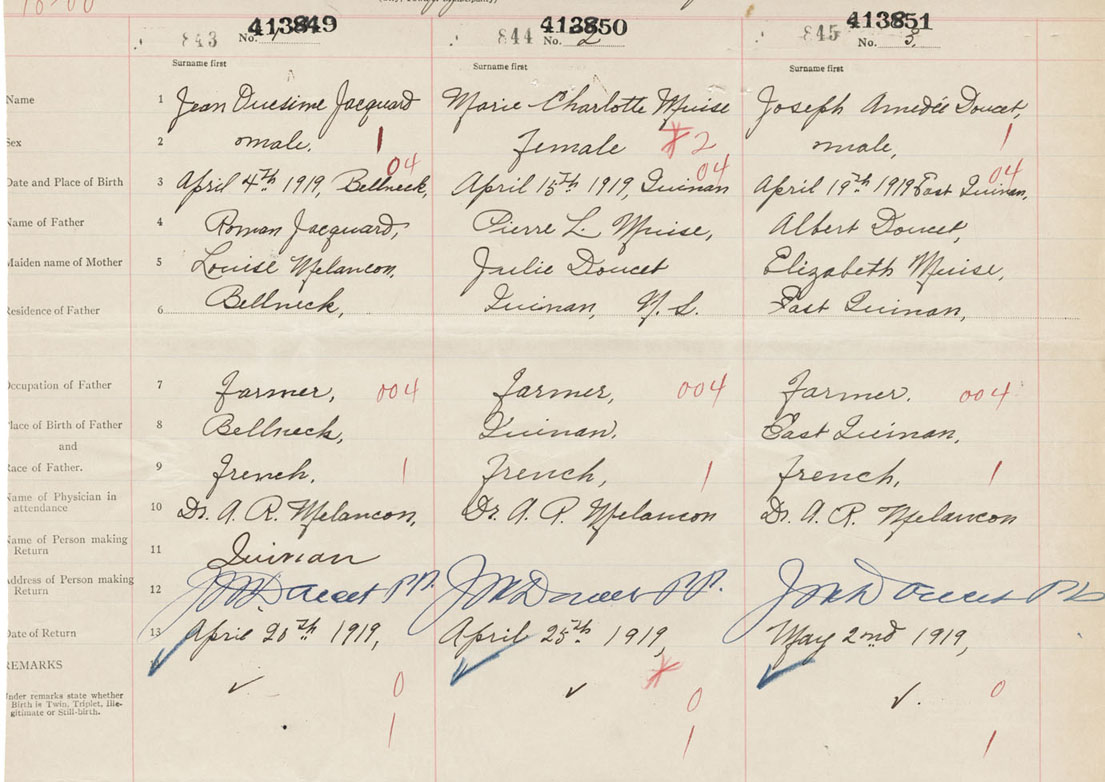 10-00
843 No. 1 413849
844 No. 2 413850
845 No. 3, 413851
Surname first Surname first Surname first
Name 1 Jean Duesime Jacquard Marie Charlotte Muise Joseph Amedée Doucet,
Sex 2 male, 1 female * 2 male, 1
04 04 04
Date and Place of Birth 3 April 4th 1919, Bellneck, April 15th 1919, Quinan April 19th 1919 East Quinan,
Name of Father 4 Roman Jacquard, Pierre L. Muise, Albert Doucet,
Maiden name of Mother 5 Louise Melancon, Julie Doucet Elizabeth Muise,
Residence of Father 6 Bellneck, Quinan, N.S. East Quinan,
Occupation of Father 7 farmer, 004 farmer, 004 farmer. 004
Place of Birth of Father 8 Bellneck, Quinan. East Quinan,
and
Race of Father. 9 french, 1 french, 1 french, 1
Name of Physician in
attendance 10 Dr. A. R. Melancon, Dr. A. R. Melancon Dr. A. R. Melancon
Name of Person making
Return 11 Quinan
Address of Person making
Return 12 Doucet P.P. Doucet P.P. Doucet
Date of Return 13 April 20th 1919, April 25th 1919, May 2nd 1919,
REMARKS
Under remarks state whether
Birth is Twin, Triplet, Ille-
gitimate or Still-birth.
✓ ✓ ✓
* 
0 0 0
1 1 1